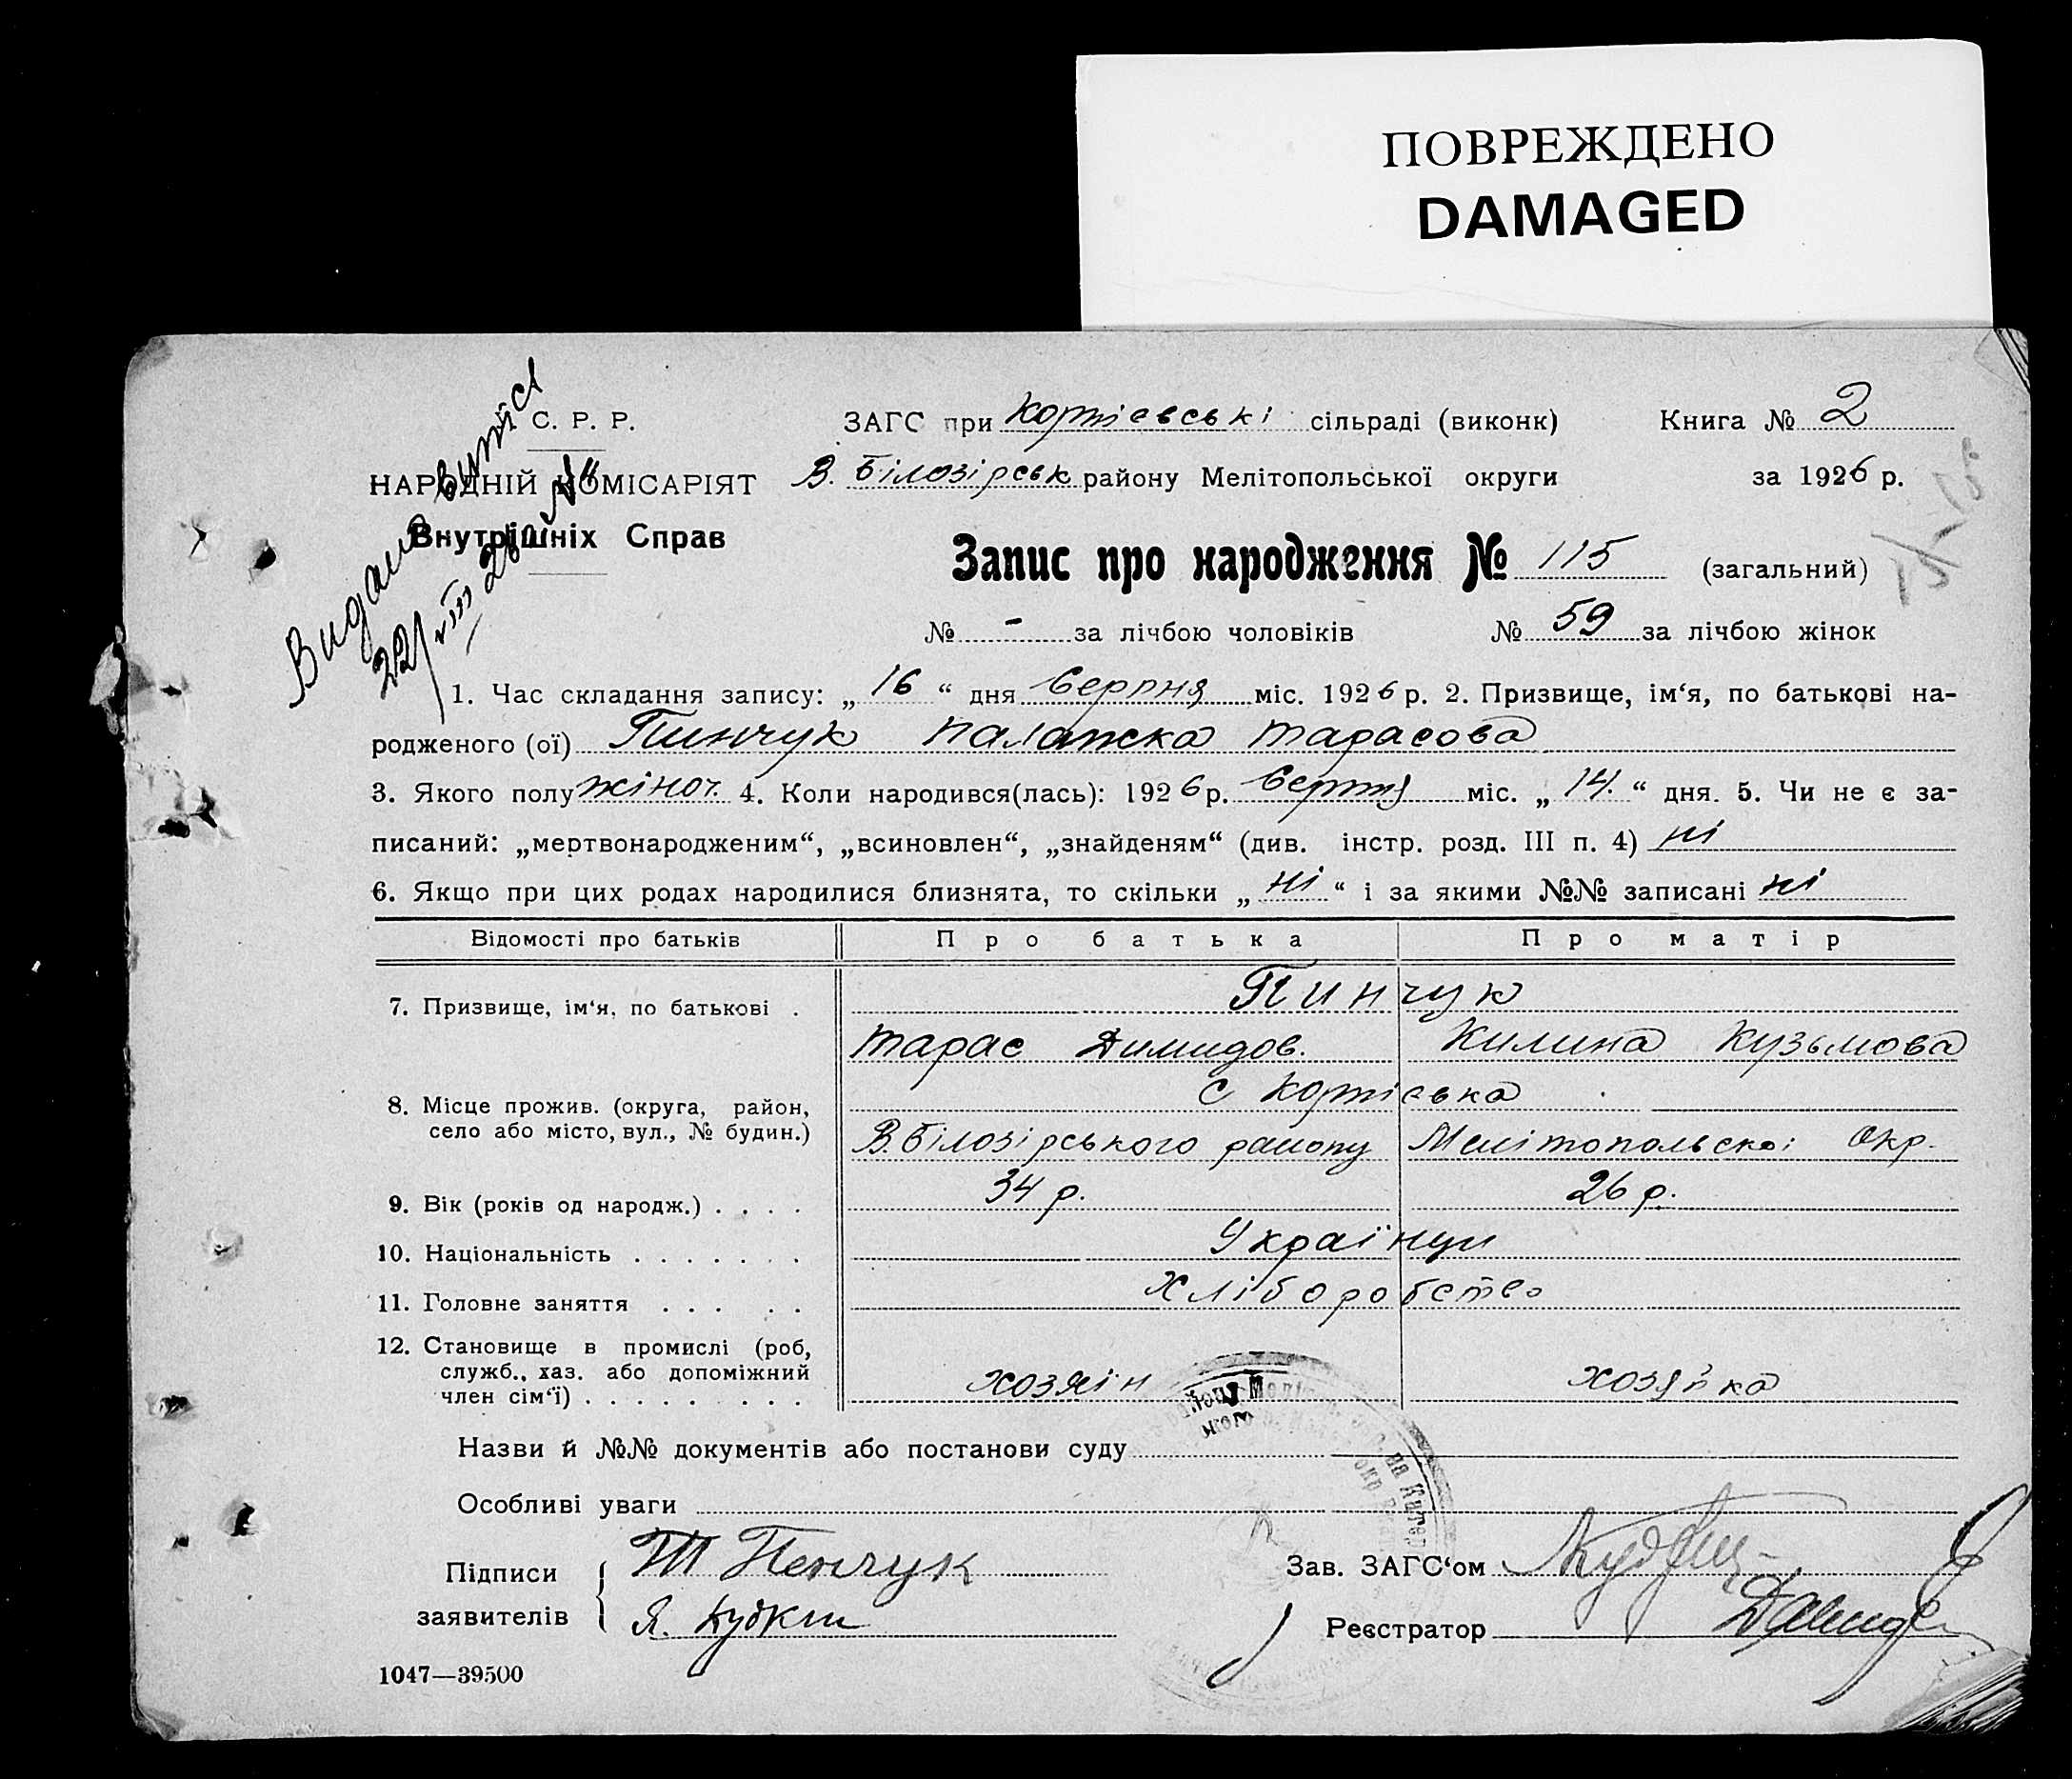 ПОВРЕЖДЕНО
DAMAGED
С. Р. Р.
НАРОДНІЙ КОМІСАРІЯТ
Внутрішніх Справ
Видано витяг
22/VIII 26 №
ЗАГС при сільраді (виконк)
Книга № 2
В. Білозірськ району Мелітопольської округи
за 1926 р.
Запис про народження № 115 (загальний)
№ - за лічбою чоловіків № 59 за лічбою жінок
1. Час складання запису: „ 16 “ дня Серпня міс. 1926 р. 2. Призвище, ім‘я, по батькові на-
родженого (ої) Пинчук Палажка Тарасова
3. Якого полу жіноч. 4. Коли народився(лась): 1926 р. Серпня міс. „ 14. “ дня. 5. Чи не є за-
писаний: „мертвонародженим“, „всиновлен“, „знайденям“ (див. інстр. розд. III п. 4) ні
6. Якщо при цих родах народилися близнята, то скільки „ ні “ і за якими №№ записані ні
Відомості про батьків Про батька Про матір
7. Призвище, ім‘я, по батькові . Пинчук
Тарас Димидов. Килина Кузьмова
8. Місце прожив. (округа, район,
село або місто, вул., № будин.)
В. Білозірського району Мелітопольскоі Окр.
9. Вік (років од народж.) . . . . 34 р. 26 р.
10. Національність . . . . . . . Українци
11. Головне заняття . . . . . Хліборобство
12. Становище в промислі (роб,
служб., хаз. або допоміжний
член сім‘ї) . . . . . . . . хозяін хозяйка
Назви й №№ документів або постанови суду
Особливі уваги
Підписи
заявителів
Т Пенчук
Я.
Зав. ЗАГС‘ом
Реєстратор
1047—39500